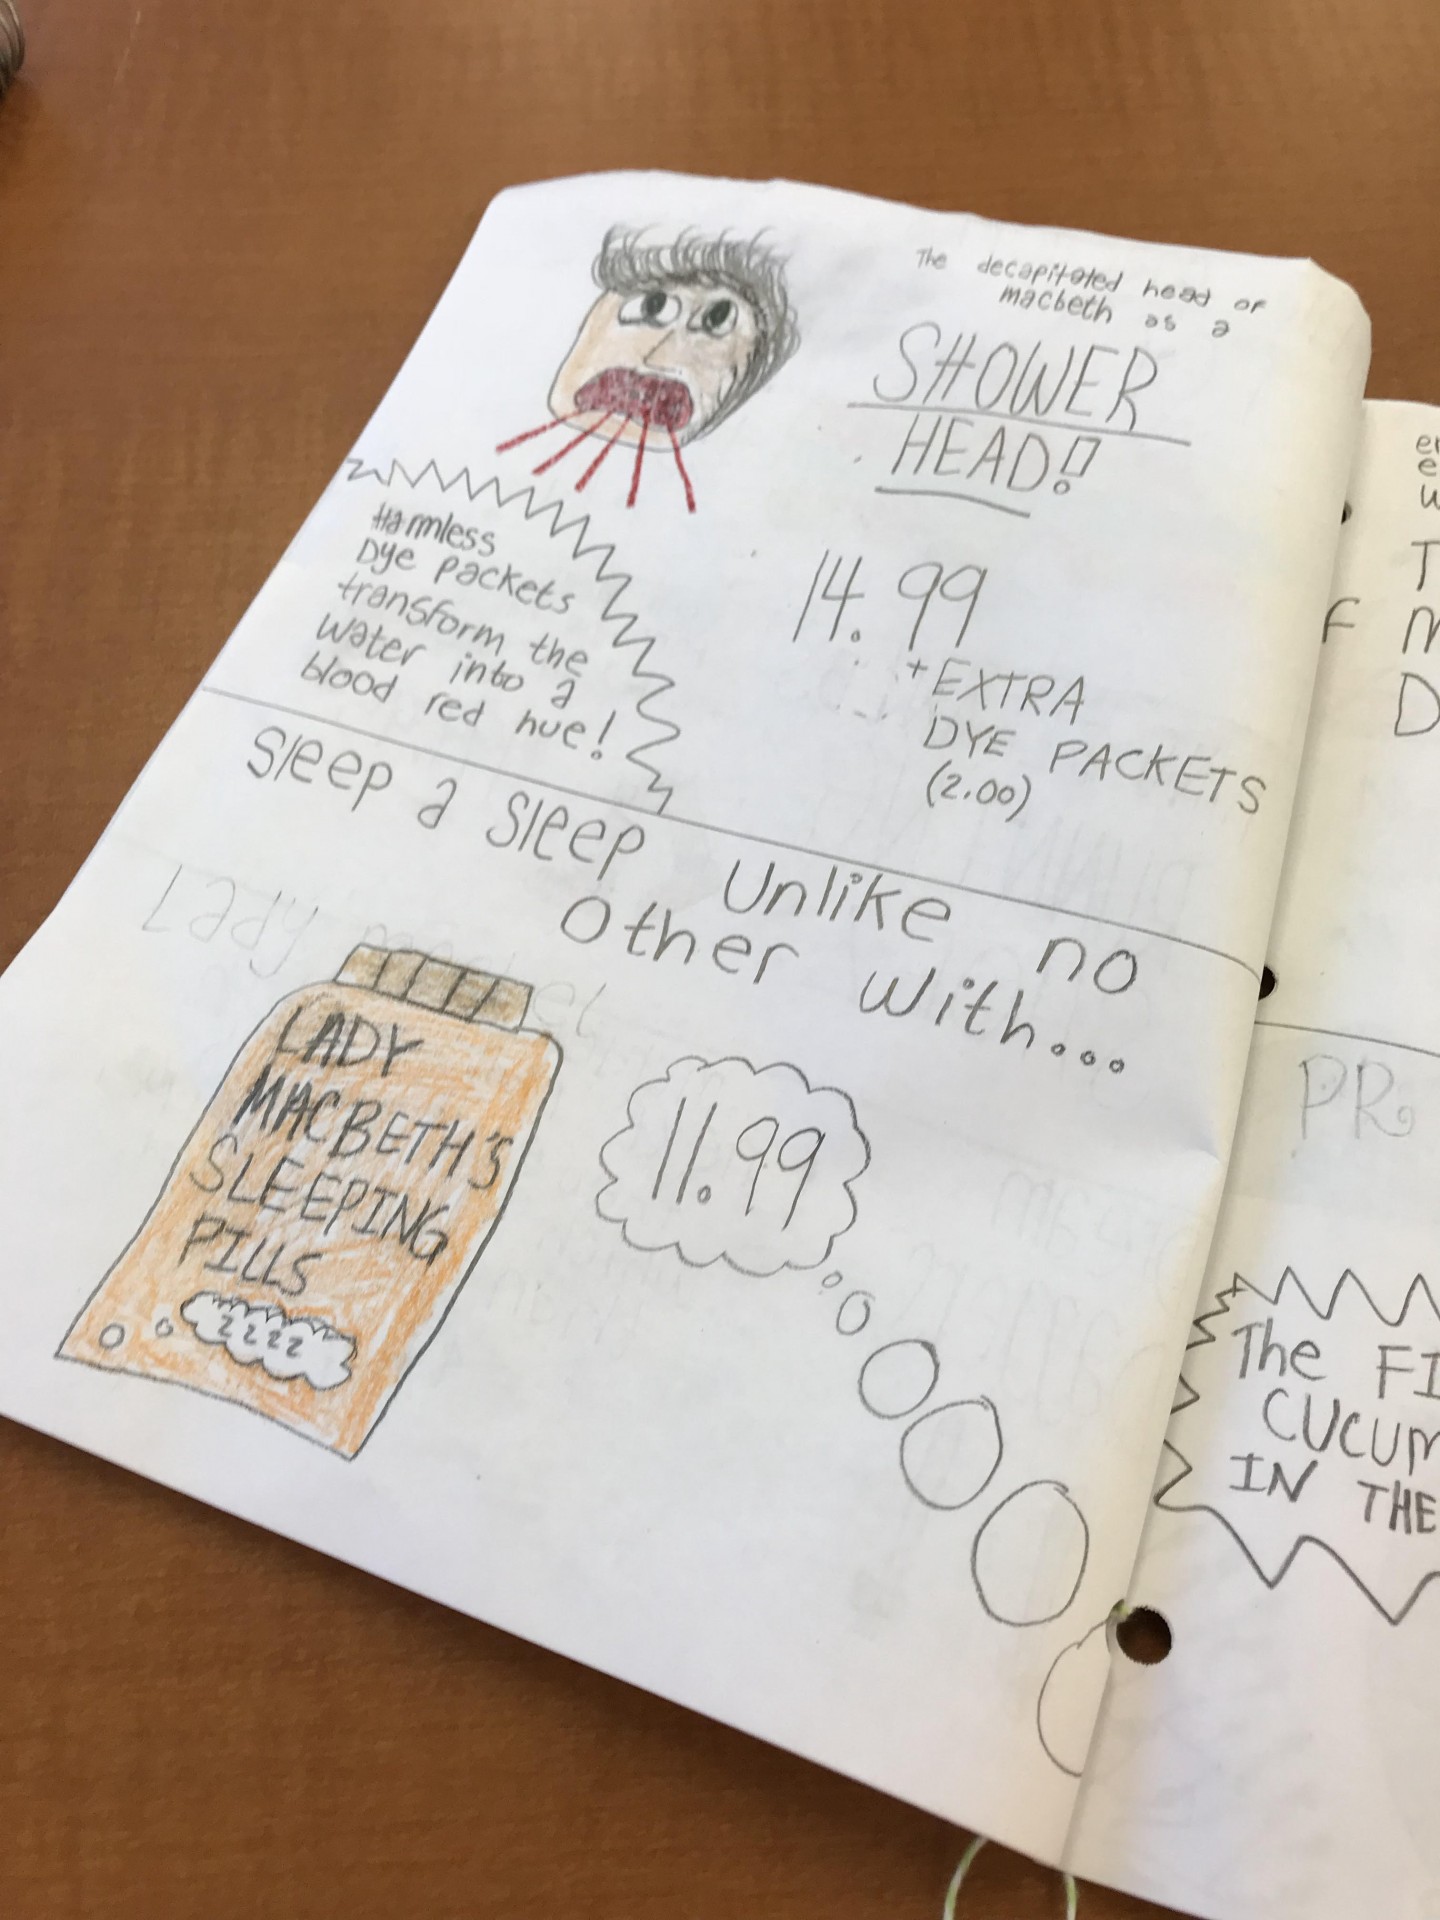 The decapitated head of
macbeth as a
SHOWER
HEAD!
Harmless
Dye packets
transform the
water into a
blood red hue!
14.99
+EXTRA
DYE PACKETS
(2.00)
Sleep a sleep unlike no
other with...
Lady
LADY
MACBETH'S
SLEEPING
PILLS
zzzz
11.99
F
PR
The FI
CUCUM
IN THE